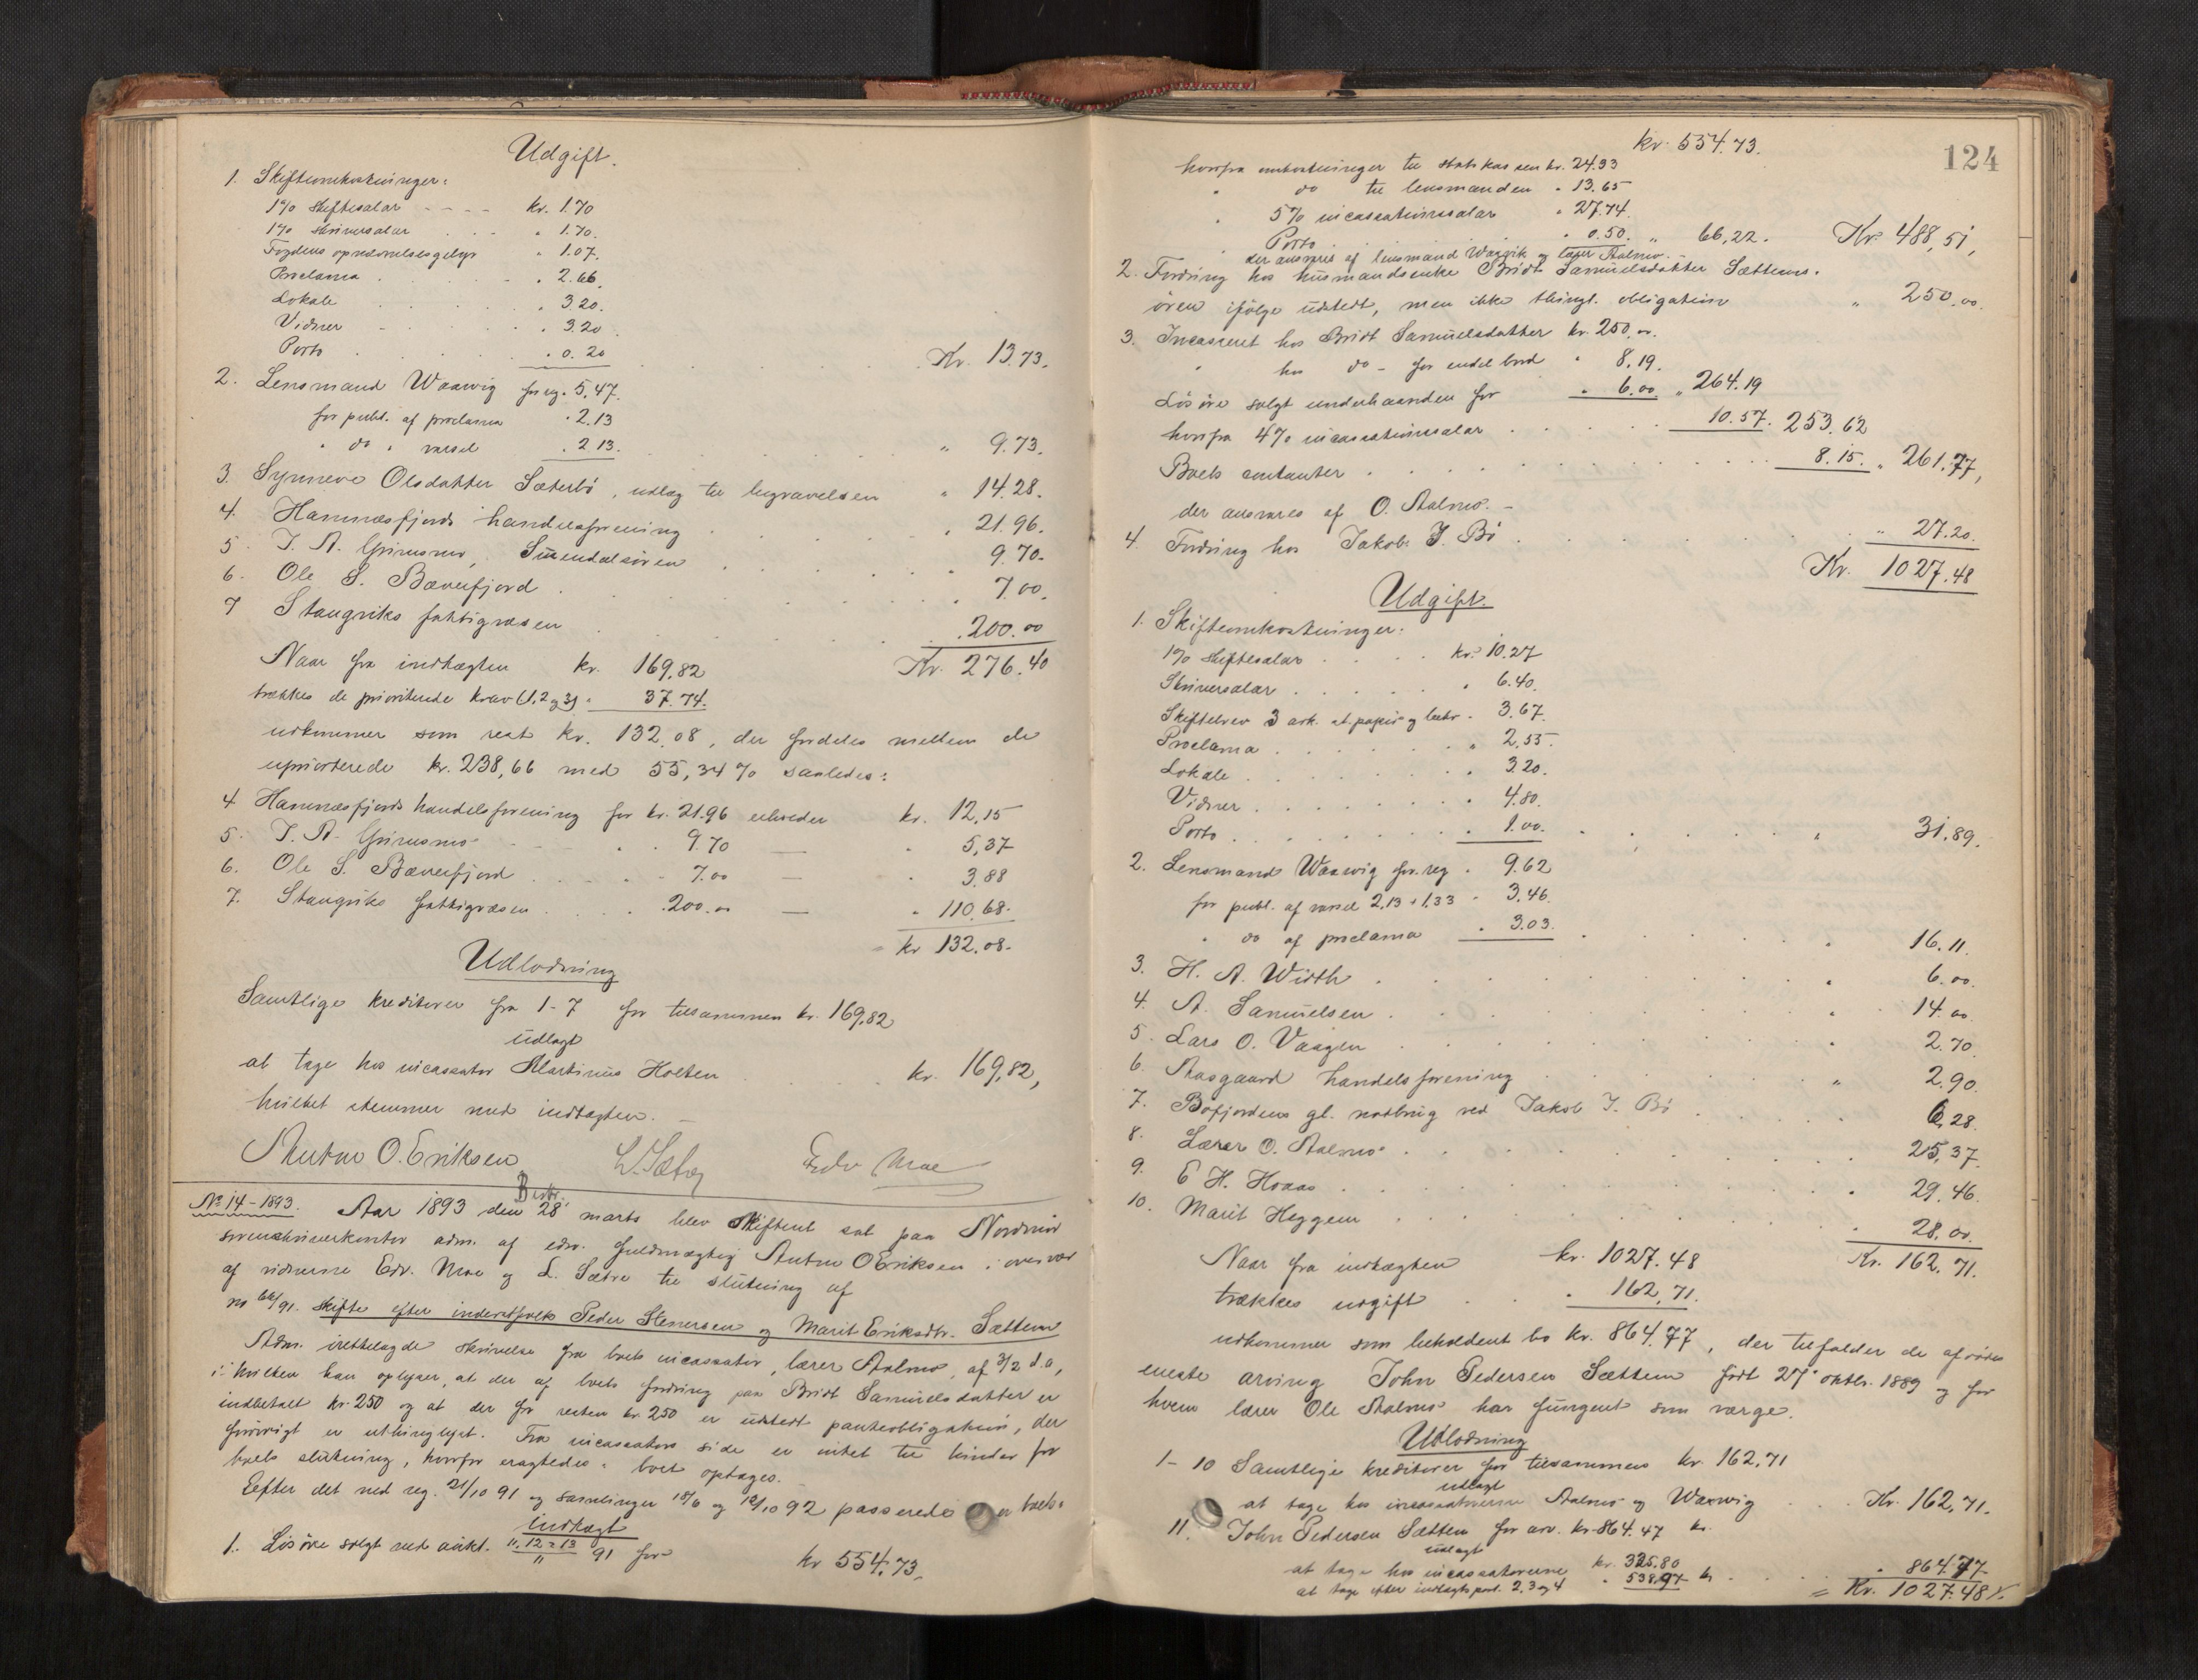 Udgift.
1. Skifteomkostninger:
1% skiftesalar - - - - kr. 1.70
1% skriversalar . . . " 1.70.
Fogdens opnævnelsesgebyr " 1.07.
Proclama . . . " 2.66.
Lokale . . . " 3.20.
Vidner . . . " 3.20
Porto . . . " 0.20 Kr. 13.73.
2. Lensmand Waawig for reg. 5,47.
for publ. af proclama " 2.13
" do " varsel " 2.13. " 9.73.
3. Synneve Olsdatter Sæterbö, udlæg til begravelsen " 14.28.
4. Hamnæsfjords handelsforening " 21.96.
5. I. A. Grimsmo, Surendalsören " 9.70.
6. Ole S. Bæverfjord . " 7.00.
7 Stangviks fattigvæsen " 200.00
Kr. 276.40
Naar fra indtægten kr. 169,82
trækkes de prioriterede krav (1, 2 og 3) " 37.74.
udkommer som rest kr. 132,08, der fordeles mellem de
uprioriterede kr. 238,66 med 55,34% saaledes:
4 Hamnæsfjords handelsforening for kr. 21.96 erholder kr. 12,15
5. I. A. Grimsmo - - " " 9.70 — " 5,37
6. Ole S. Bæverfjord . . . - " 7.00 — " 3,88
7. Stangviks fattigvæsen . . . " 200.00 — " 110,68.
= kr 132.08.
Udlodning
Samtlige kreditorer fra 1-7 for tilsammen kr. 169,82
udlagt
at tage hos incassator Martinus Holten . . . . kr. 169,82,
hvilket stemmer med indtægten. —
Anton O. Eriksen L. Sætre Edv Moe
No 14 - 1893. Aar 1893 den 28 marts blev skifteret sat paa Nordmör
sorenskriverkontor adm. af edsv. fuldmægtig Anton O Eriksen i overvær
af vidnerne Edv. Moe og L. Sætre til slutning af
no 64/91. Skifte efter inderstfolk Peder Stenersen og Marit Eriksdtr. Sættem
Adm. irettelagde skrivelse fra boets incassator, lærer Aalmo, af 3/2 d.a,
i hvilken han oplyser, at der af boets fordring paa Bridt Samuelsdatter er
indbetalt kr. 250 og at der for resten kr. 250 er udstedt panteobligation, der
forövrigt er uthinglyst. Fra incassators side er intet til hinder for
boets slutning, hvorfor eragtedes: boet optages.
Efter det ved reg. 21/10 91 og samlinger 18/6 og 12/10 92 passerede er boets
indtægt
1. Lösöre solgt ved aukt. 11, 12 & 13/11 91 for kr 554,73,
124
kr. 554.73.
hvorfra omkostninger til statskassen kr. 24.33
" do til lensmanden " 13.65
" 5% incassationssalar " 27.74.
" Porto . . " 0.50. " 66,22. Kr. 488,51,
der ansvares af lensmand Waagvik og lærer Aalmo.
2. Fordring hos husmandsenke Bridt Samuelsdatter Sættems-
ören ifölge udstedt, men ikke thingl. obligation " 250.00
3. Incasseret hos Bridt Samuelsdatter kr. 250.00.
" hos do - for endel bord " 8,19.
Lösöre solgt underhaanden for " 6.00. " 264.19
hvorfra 4% incassationssalar . . . 10.57. 253.62
Boets contanter . . . 8.15. " 261.77,
der ansvares af O. Aalmo. -
4. Fordring hos Jakob J. Bö . . . " 27.20.
Kr. 1027.48
Udgift.
1. Skifteomkostninger:
1% skiftesalar . . . . kr. 10.27
Skriversalar . . . . " 6.40.
Skiftebrev 3 ark. st. papir og beskr. " 3.67.
Proclama . . . . " 2,55.
Lokale . . . . " 3.20.
Vidner . . . . " 4.80.
Porto . . . . " 1.00. " 31.89.
2. Lensmand Waawig for reg " 9.62
for publ. af varsel 2,13 + 1,33 " 3,46.
" do af proclama " 3.03. " 16.11.
3. H. A. Wirth . . . " 6.00.
4. A. Samuelsen . . . " 14.00.
5. Lars O. Vaagen . . . " 2.70.
6. Aasgaard handelsforening . . . " 2.90.
7. Böfjordens gl. notbrug ved Jakob J. Bö . . . 6,28.
8. Lærer O. Aalmo . . . 25,37.
9. E H. Hoaas . . . " 29.46.
10. Marit Heggem . . . " 28.00.
Naar fra indtægten kr. 1027.48 Kr. 162.71.
trækkes udgift . . " 162,71.
udkommer som beholdent bo kr. 864.77, der tilfalder de afdödes
eneste arving John Pedersen Sættem födt 27' oktbr. 1889 og for
hvem lærer Ole Aalmo har fungeret som værge.
Udlodning
1-10 Samtlige kreditorer for tilsammen kr. 162,71
udlagt
at tage hos incassatorerne Aalmo og Waawig . . . Kr. 162,71.
11. John Pedersen Sættem for arv. kr. 864.47 kr.
udlagt
at tage hos incassatorerne kr. 325.80
at tage efter indtægts post. 2, 3 og 4 " 538,97 kr . . . " 864.77
= Kr. 1027.48